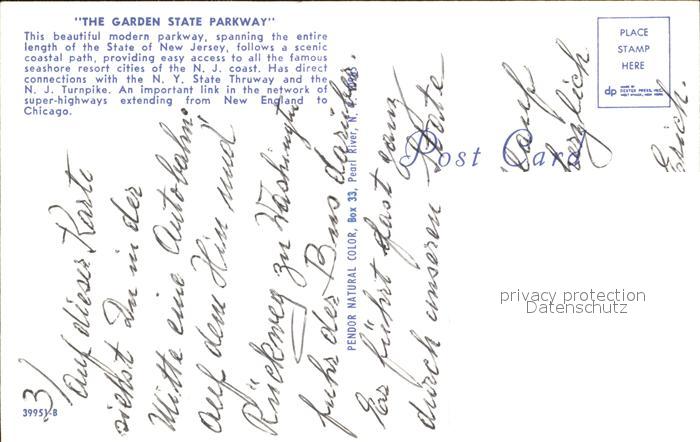 "THE GARDEN STATE PARKWAY"
This beautiful modern parkway, spanning the entire
length of the State of New Jersey, follows a scenic
coastal path, providing easy access to all the famous
seashore resort cities of the N. J. coast. Has direct
connections with the N. Y. State Thruway and the
N. J. Turnpike. An important link in the network of
super-highways extending from New England to
Chicago.
PLACE
STAMP
HERE
dp
MADE BY
DEXTER PRESS, INC.
WEST NYACK, NEW YORK
Post Card
PENDOR NATURAL COLOR, Box 33, Pearl River, N. Y.
39951-B
3)
Auf dieser Karte
siehst Du in der
Mitte eine Autobahn.
Auf dem Hin und
Rückweg zu Washington
fuhr der Bus darüber.
Es führt fast ganz
durch unseren State
herzlich
Erich.
privacy protection
Datenschutz